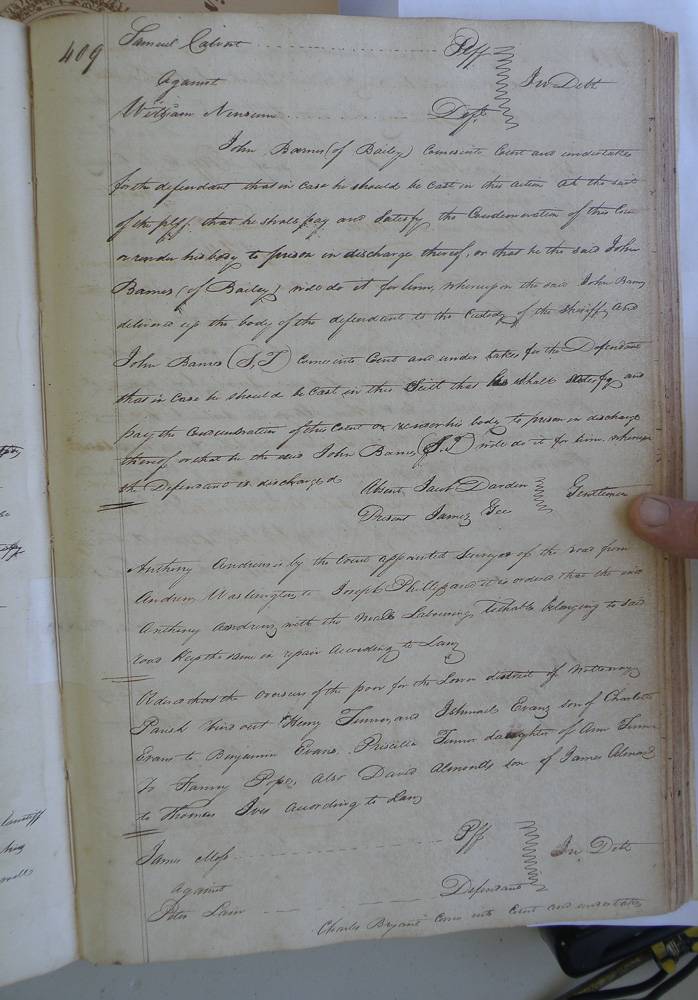 409
Samuel Calvert Plff
against In Debt
William Newsum Deft
John Barnes (of Bailey) comes into Court and undertakes
for the defendant that in case he should be cast in this action at the suit
of the plff. that he shall pay and satisfy the Condemnation of this Cou
or render his body to prison in discharge thereof, or that he the said John
Barnes (of Bailey) will do it for him, whereupon the said John Barnes
delivered up the body of the defendant to the Custody of the Sheriff, and
John Barnes (S,T) comes into Court and under takes for the Defendant
that in case he should be cast in this Suit that he shall satisfy and
pay the Condemnation of this Court or render his body to prison in discharge
thereof or that he the said John Barnes (S.T) will do it for him, whereupon
the Defendant is discharged
Absent, Jacob Darden Gentlemen
Present James Gee
Anthony Andrews is by the Court appointed Surveyor of the road from
Andrew Washingtons to Joseph Phillips and it is ordered that the said
Anthony Andrews with the male Labouring Tithables belonging to said
road keep the same in repair according to Law
Ordered that the overseers of the poor for the Lower district of Nottoway
Parish bind out Henry Turner, and Ishmael Evans son of Charlotte
Evans to Benjamin Evans, Priscilla Turner daughter of Ann Turner
To Fanny Pope, also David Almond son of James Almond
to Thomas Ives according to Law
James Moss Plff
against In Debt
Peter Lain Defendant
Charles Bryant comes into Court and undertakes